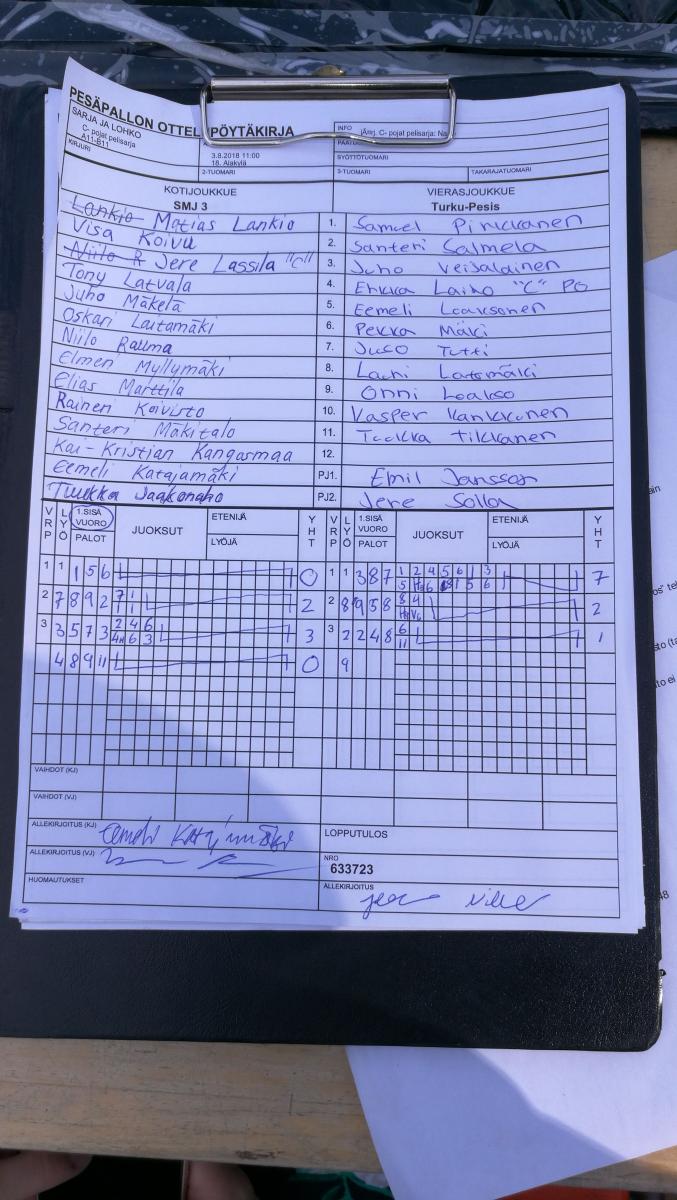 PESÄPALLON OTTEL PÖYTÄKIRJA
SARJA JA LOHKO
C- pojat pelisarja
A11-B11
3.8.2018 11:00
18. Alakylä
INFO
jÄrrj. C- pojat pelisarja: Na
KIRJURI
2-TUOMARI
SYÖTTÖTUOMARI
3-TUOMARI
TAKARAJATUOMARI
KOTIJOUKKUE
SMJ 3
VIERASJOUKKUE
Turku-Pesis
Lankio Matias Lankio 1. Samuel Pirkkanen
Visa Koivu 2. Santeri Salmela
Niilo R Jere Lassila "C" 3. Juho Veijalainen
Tony Latvala 4. Erkka Laiho "C" PG
Juho Mäkelä 5. Eemeli Laaksonen
Oskari Lautamäki 6. Pekka Mäki
Niilo Rauma 7. Juso Tutti
Elmeri Myllymäki 8. Lauri Latomäki
Elias Marttila 9. Onni Laakso
Raineri Koivisto 10. Kasper Kankkunen
Santeri Mäkitalo 11. Tuukka Tikkanen
Kai-Kristian Kangasmaa 12.
Eemeli Katajamäki PJ1. Emil Jansson
Tuukka Jaakonaho PJ2. Jere Solla
VRP LYÖ 1.SISÄ VUORO PALOT JUOKSUT ETENIJÄ LYÖJÄ YHT VRP LYÖ 1.SISÄ VUORO PALOT JUOKSUT ETENIJÄ LYÖJÄ YHT
1 1 1 5 6 0 1 1 3 8 7 7
2 7 8 9 2 2 2 8 9 5 8 2
3 3 5 7 3 3 3 2 2 4 8 1
4 8 9 11 0 9
VAIHDOT (KJ)
VAIHDOT (VJ)
ALLEKIRJOITUS (KJ) Eemeli Katajamäki
LOPPUTULOS
ALLEKIRJOITUS (VJ)
NRO
633723
HUOMAUTUKSET
ALLEKIRJOITUS